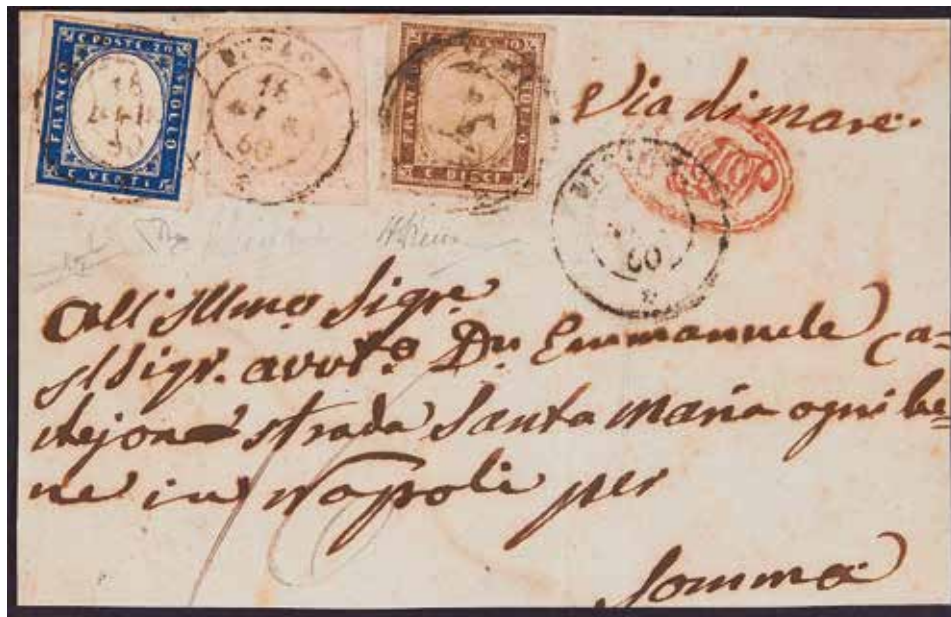 C POSTE 20
FRANCO
BOLLO
C VENTI
18
60
18
60
FRANCO
BOLLO
C DIECI
Via di mare.
60
All'Illmo. Sigre
Il Sigr. avvto. Dn. Emmanuele Ca=
strada Santa Maria ogni be=
ne in Napoli per
Somma